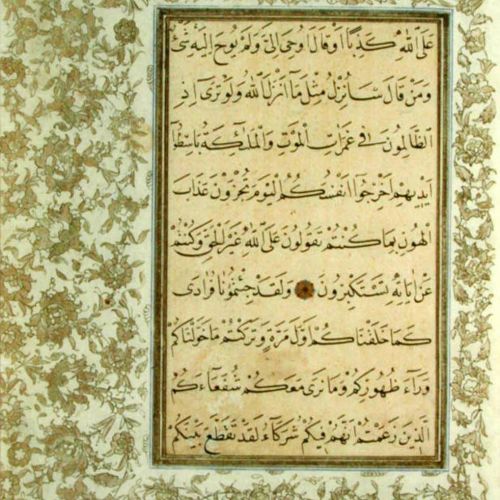 على الله كذبا او قال اوحى الى ولم يوح اليه شئ
ومن قال سانزل مثل ما انزل الله ولو ترى اذ
الظالمون فى غمرات الموت والملئكة باسطوا
ايديهم اخرجوا انفسكم اليوم تجزون عذاب
الهون بما كنتم تقولون على الله غير الحق وكنتم
عن اياته تستكبرون ولقد جئتمونا فرادى
كما خلقناكم اول مرة وتركتم ما خولناكم
وراء ظهوركم وما نرى معكم شفعاءكم
الذين زعمتم انهم فيكم شركاء لقد تقطع بينكم